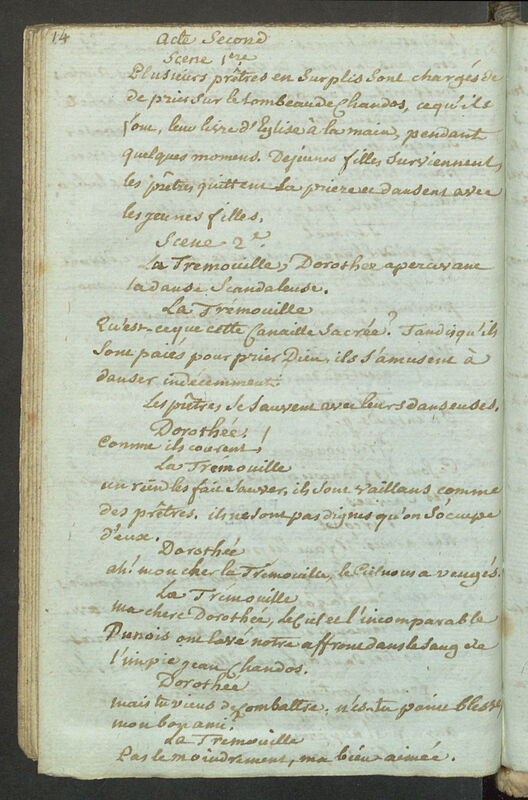 14
Acte Second
Scene 1ere
Plusieurs prêtres en Surplis Sont chargés de
de prier Sur le tombeau de Chandos, ce qu'ils
font, leur livre d'Eglise à la main, pendant
quelques momens. De jeunes filles Surviennent,
les prêtres quittent La priere et dansent avec
les jeunes filles.
Scene 2e.
La Tremouille, Dorothée apercevant
la danse Scandaleuse.
La Trémouille
Qu'est-ce que cette Canaille Sacrée? Tandis qu'ils
Sont paiés pour prier Dieu, ils s'amusent à
danser indecemment.
Les prêtres Se Sauvent avec leurs danseuses.
Dorothée.
Comme ils courent!
La Trémouille
un rien les fait Sauver, ils Sont vaillans comme
des prêtres. ils ne Sont pas dignes qu'on S'occupe
d'eux.
Dorothée
ah! mon cher la Trémouille, le Ciel nous a vengés.
La Trémouille
ma chere Dorothée, le Ciel et l'incomparable
Dunois ont lavé notre affront dans le Sang de
l'impie jean Chandos.
Dorothée
mais tu viens de combattre. n'es-tu point blessé,
mon bon ami?
La Tremouille
Pas le moindrement, ma bien aimée.